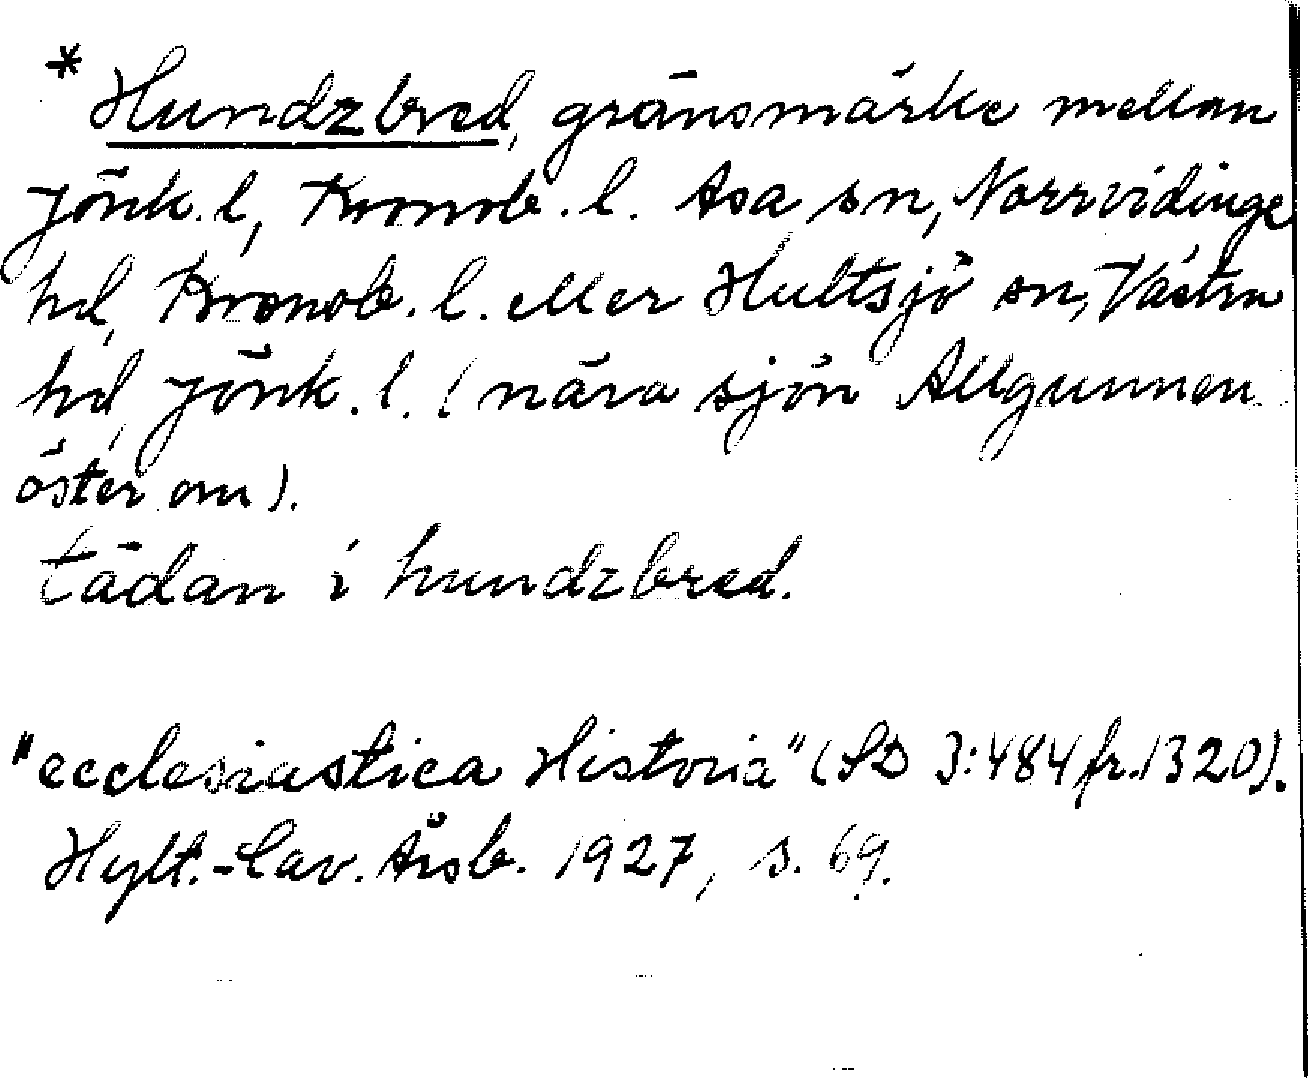 * Hundzbred, gränsmärke mellan
Jönk. l, Kronob. l. Asa sn, Norrvidinge
hd, Kronob. l. eller Hultsjö sn, Västra
hd, Jönk. l. (nära sjön Allgunnen
öster om).
tädan i hundzbred.
"ecclesiastica Historia" (SD 3:484 fr. 1320).
Hylt.-Cav. Årsb. 1927, s. 69.